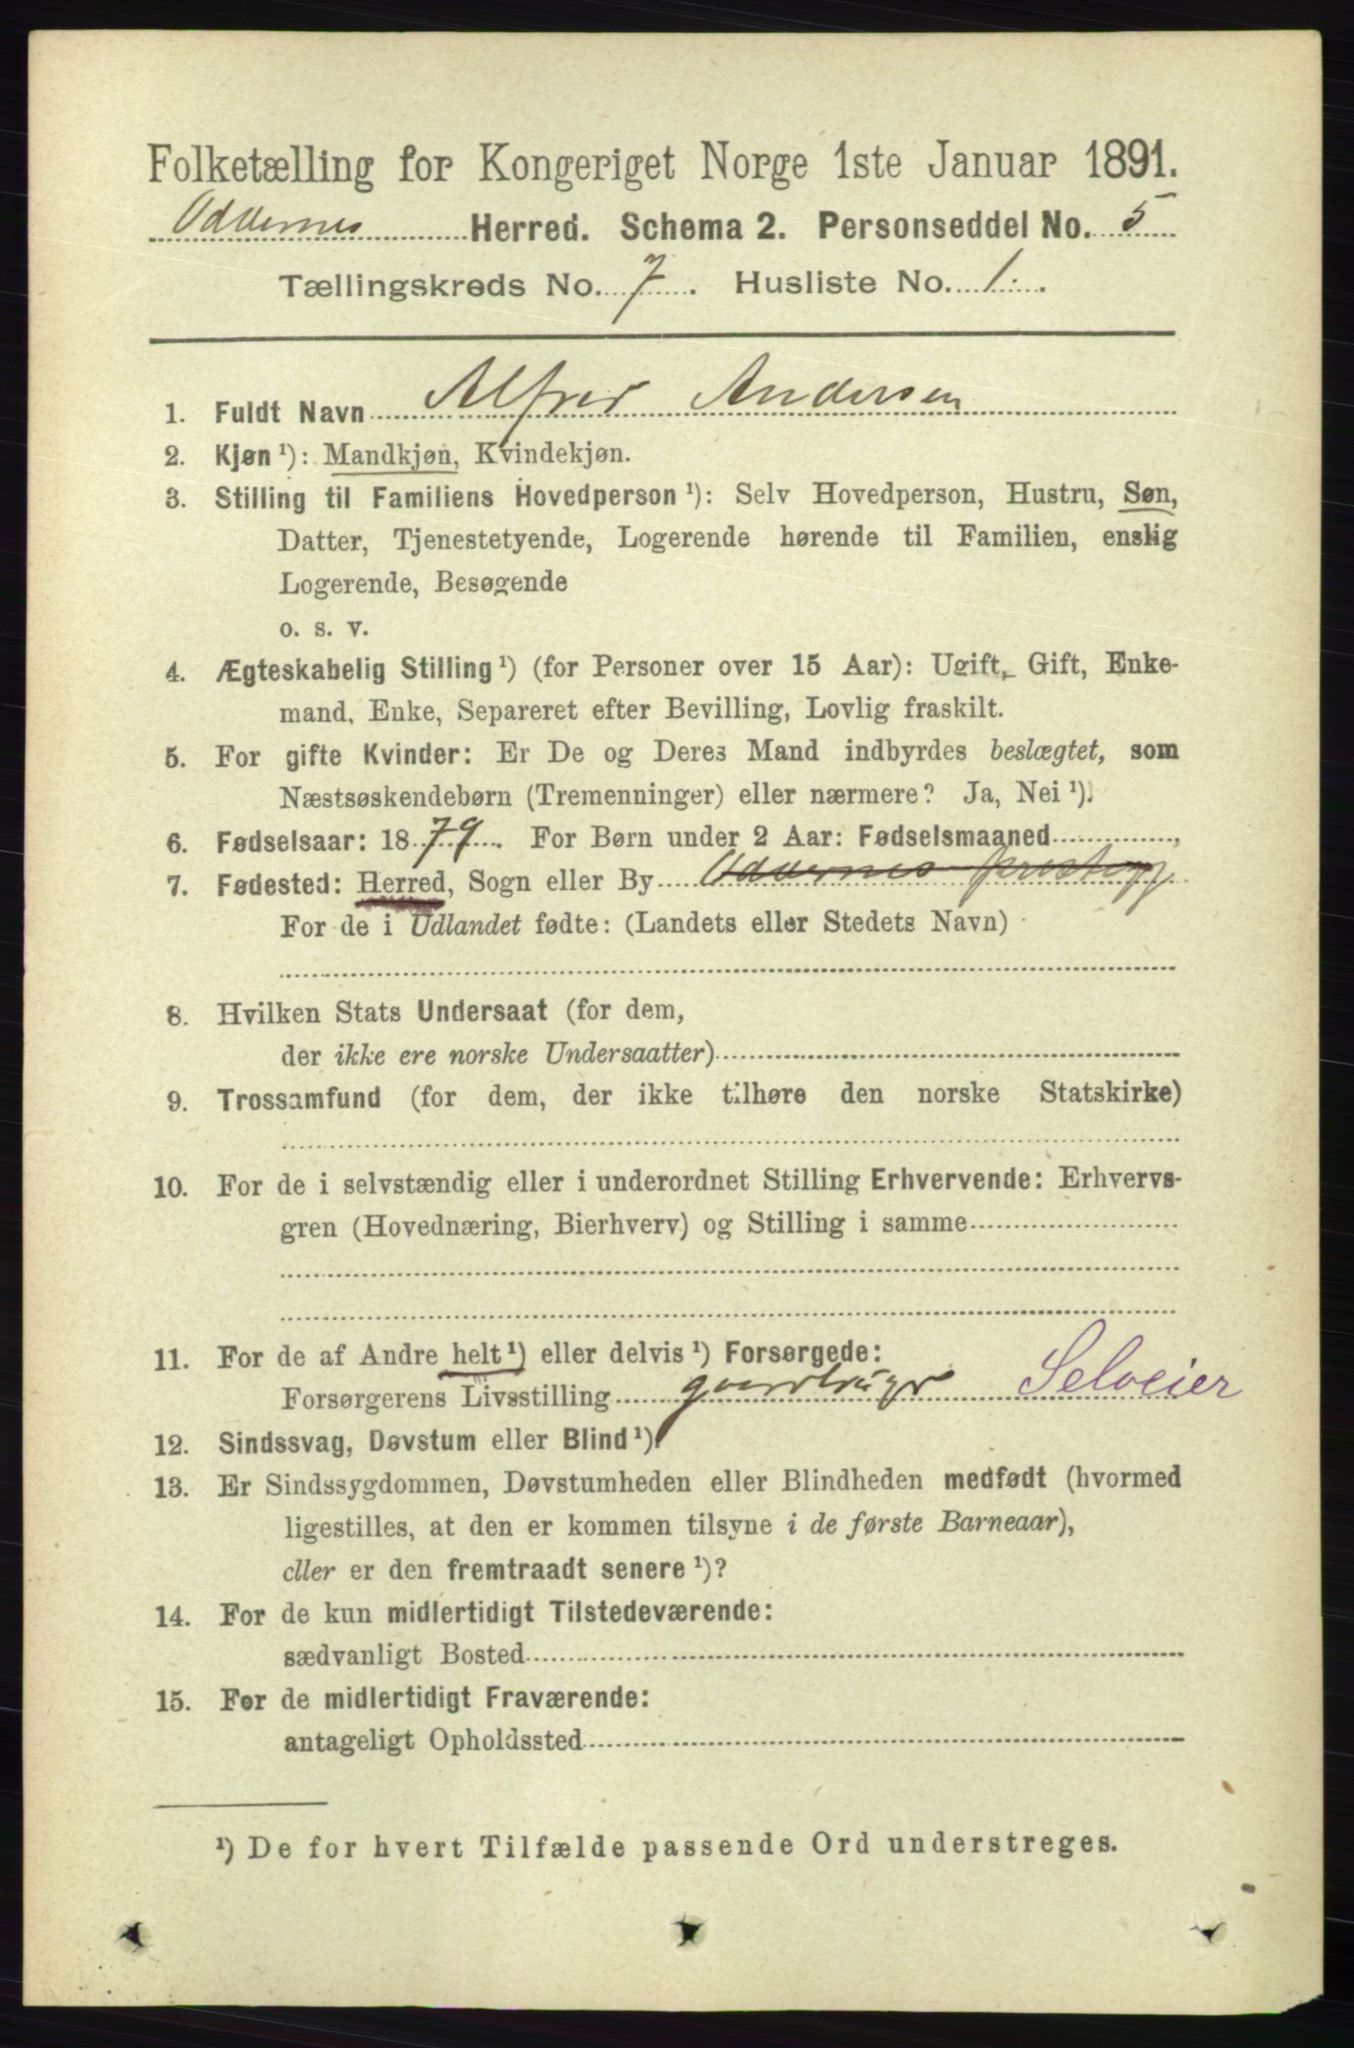 Folketælling for Kongeriget Norge 1ste Januar 1891.
Oddernes Herred. Schema 2. Personseddel No. 5
Tællingskreds No. 7. Husliste No. 1.
1. Fuldt Navn Alfred Andersen
2. Kjøn ¹): Mandkjøn, Kvindekjøn.
3. Stilling til Familiens Hovedperson ¹): Selv Hovedperson, Hustru, Søn,
Datter, Tjenestetyende, Logerende hørende til Familien, enslig
Logerende, Besøgende
o. s. v.
4. Ægteskabelig Stilling ¹) (for Personer over 15 Aar): Ugift, Gift, Enke-
mand, Enke, Separeret efter Bevilling, Lovlig fraskilt.
5. For gifte Kvinder: Er De og Deres Mand indbyrdes beslægtet, som
Næstsøskendebørn (Tremenninger) eller nærmere? Ja, Nei ¹).
6. Fødselsaar: 1879. For Børn under 2 Aar: Fødselsmaaned,
7. Fødested: Herred, Sogn eller By Oddernes
For de i Udlandet fødte: (Landets eller Stedets Navn)
8. Hvilken Stats Undersaat (for dem,
der ikke ere norske Undersaatter)
9. Trossamfund (for dem, der ikke tilhøre den norske Statskirke)
10. For de i selvstændig eller i underordnet Stilling Erhvervende: Erhvervs-
gren (Hovednæring, Bierhverv) og Stilling i samme
11. For de af Andre helt ¹) eller delvis ¹) Forsørgede:
Forsørgerens Livsstilling gaardbruger Selveier
12. Sindssvag, Døvstum eller Blind ¹)
13. Er Sindssygdommen, Døvstumheden eller Blindheden medfødt (hvormed
ligestilles, at den er kommen tilsyne i de første Barneaar),
eller er den fremtraadt senere ¹)?
14. For de kun midlertidigt Tilstedeværende:
sædvanligt Bosted
15. For de midlertidigt Fraværende:
antageligt Opholdssted
¹) De for hvert Tilfælde passende Ord understreges.